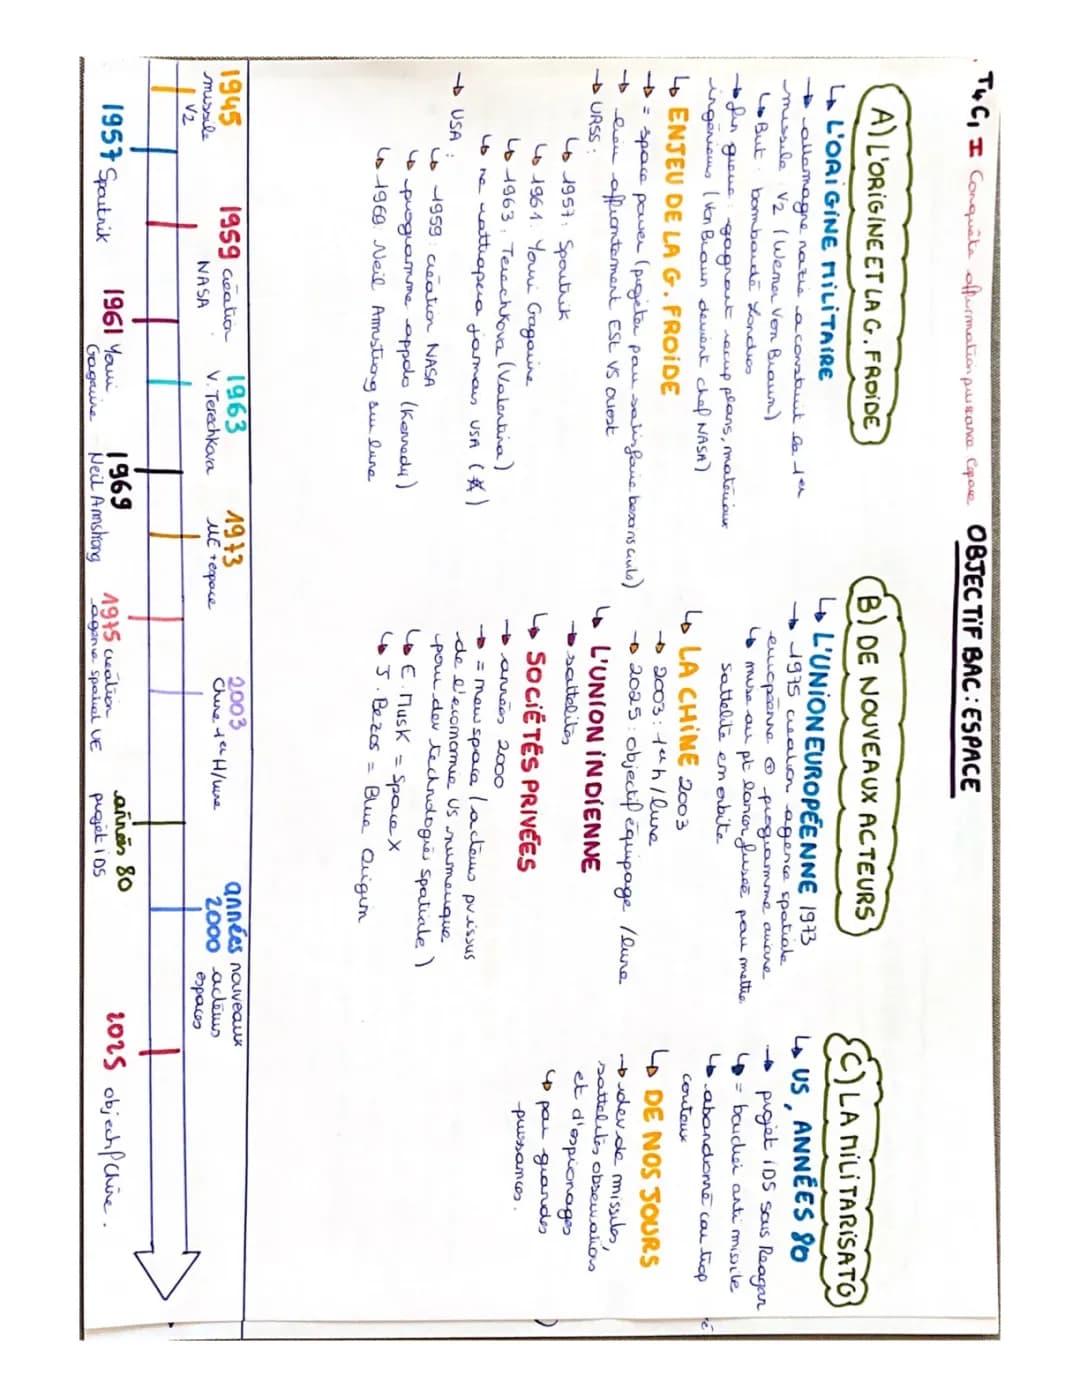 T4C1 I Conquête affirmation puissance Espace
OBJECTIF BAC : ESPACE
A) L'ORIGINE ET LA G. FROIDE
↳ L'ORIGINE MILITAIRE
→ allemagne nazie a construit la 1er
missile V2 (Werner Von Braun)
↳ But : bombardé Londres
→ fin guerre : gagnant recup plans, matériaux
ingénieurs (Von Braun devient chef NASA)
↳ ENJEU DE LA G. FROIDE
→ = space power (projeter pour satisfaire besoins civils)
→ lieu affrontement EST VS OUEST
→ URSS :
↳ 1957 : Spoutnik
↳ 1961 : Youri Gagarine
↳ 1963 : Terechkova (Valentina)
↳ ne rattrapera jamais USA (☆)
→ USA :
↳ 1959 : création NASA
↳ programme appolo (Kennedy)
↳ 1969 : Neil Armstrong sur lune
B) DE NOUVEAUX ACTEURS
↳ L'UNION EUROPÉENNE 1973
→ 1975 creation agence spatiale
européenne programme ariane
↳ mise au pt lanceur fusée pour mettre
sattelite en orbite
↳ LA CHINE 2003
→ 2003 : 1er h / lune
→ 2025 : objectif équipage / lune
↳ L'UNION INDIENNE
→ sattelites
↳ SOCIÉTÉS PRIVÉES
→ années 2000
→ = new space (acteurs puissus
de l'economie US numerique
pour dev technologies spatiale)
↳ E. Musk = Space X
↳ J. Bezos = Blue Origin
C) LA MILITARISATO
↳ US, ANNÉES 80
→ projet IDS sous Reagan
↳ = bouclier anti missile
↳ abandonné car trop
couteux
↳ DE NOS JOURS
→ dev de missiles,
sattelites observations
et d'espionages
↳ par grandes
puissances.
1945
missile
V2
1959 création
NASA
1963
V. Terechkova
1973
UE + espace
2003
Chine 1er H/lune
années nouveaux
2000 acteurs
espaces
1957 Spoutnik
1961 Youri
Gagarine
1969
Neil Armstrong
1975 création
agence spatial UE
années 80
projet IDS
2025 objectif Chine.